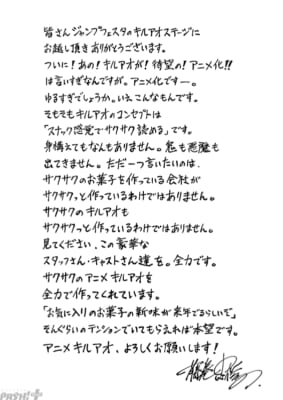 皆さんジャンプフェスタのキルアオステージに
お越し頂きありがとうございます。
ついに!あの!キルアオが!待望の!アニメ化!!
は言いすぎなんですが。アニメ化ですー。
ゆるすぎでしょうか。いえこんなもんです。
そもそもキルアオのコンセプトは
「スナック感覚でサクサク読める」です。
身構えてもなんもありません。鬼も悪魔も
出てきません。ただ一つ言いたいのは、
サクサクのお菓子を作っている会社が
サクサクッと作っているわけではありません。
サクサクのキルアオも
サクサクっと作っているわけではありません。
見てください、この豪華な
スタッフさん・キャストさん達を。全力です。
サクサクのアニメキルアオを
全力で作ってくれています。
「お気に入りのお菓子の新味が来年でるらしいぞ」
そんぐらいのテンションでいてもらえれば本望です。
アニメキルアオ、よろしくお願いします!
PASH!+